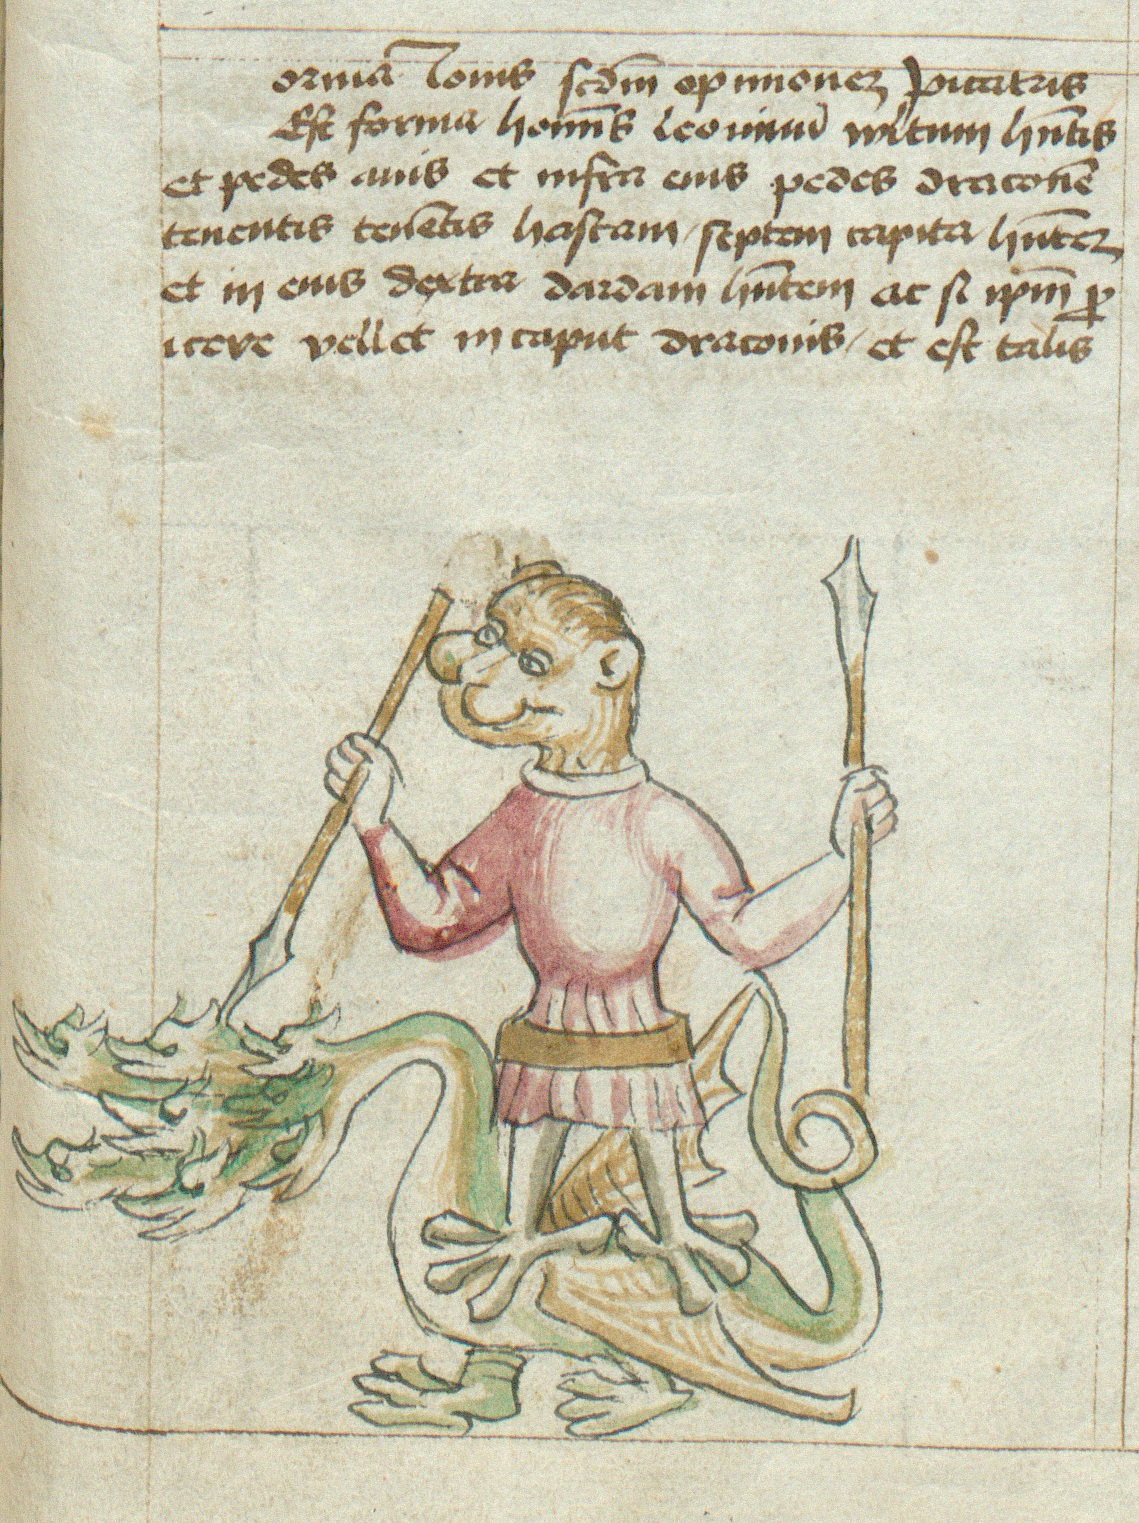 ormā Iouis scd̄m opinionem picatris
Est forma hom̄is leoninū vultum hn̄tis
et pedes auis et infra eius pedes draconē
tenentis ten̄etis hastam / septem capita hn̄tem
et in eius dextra dardam hn̄tem ac si ip̄m ꝓ
icere vellet in caput draconis / et est talis